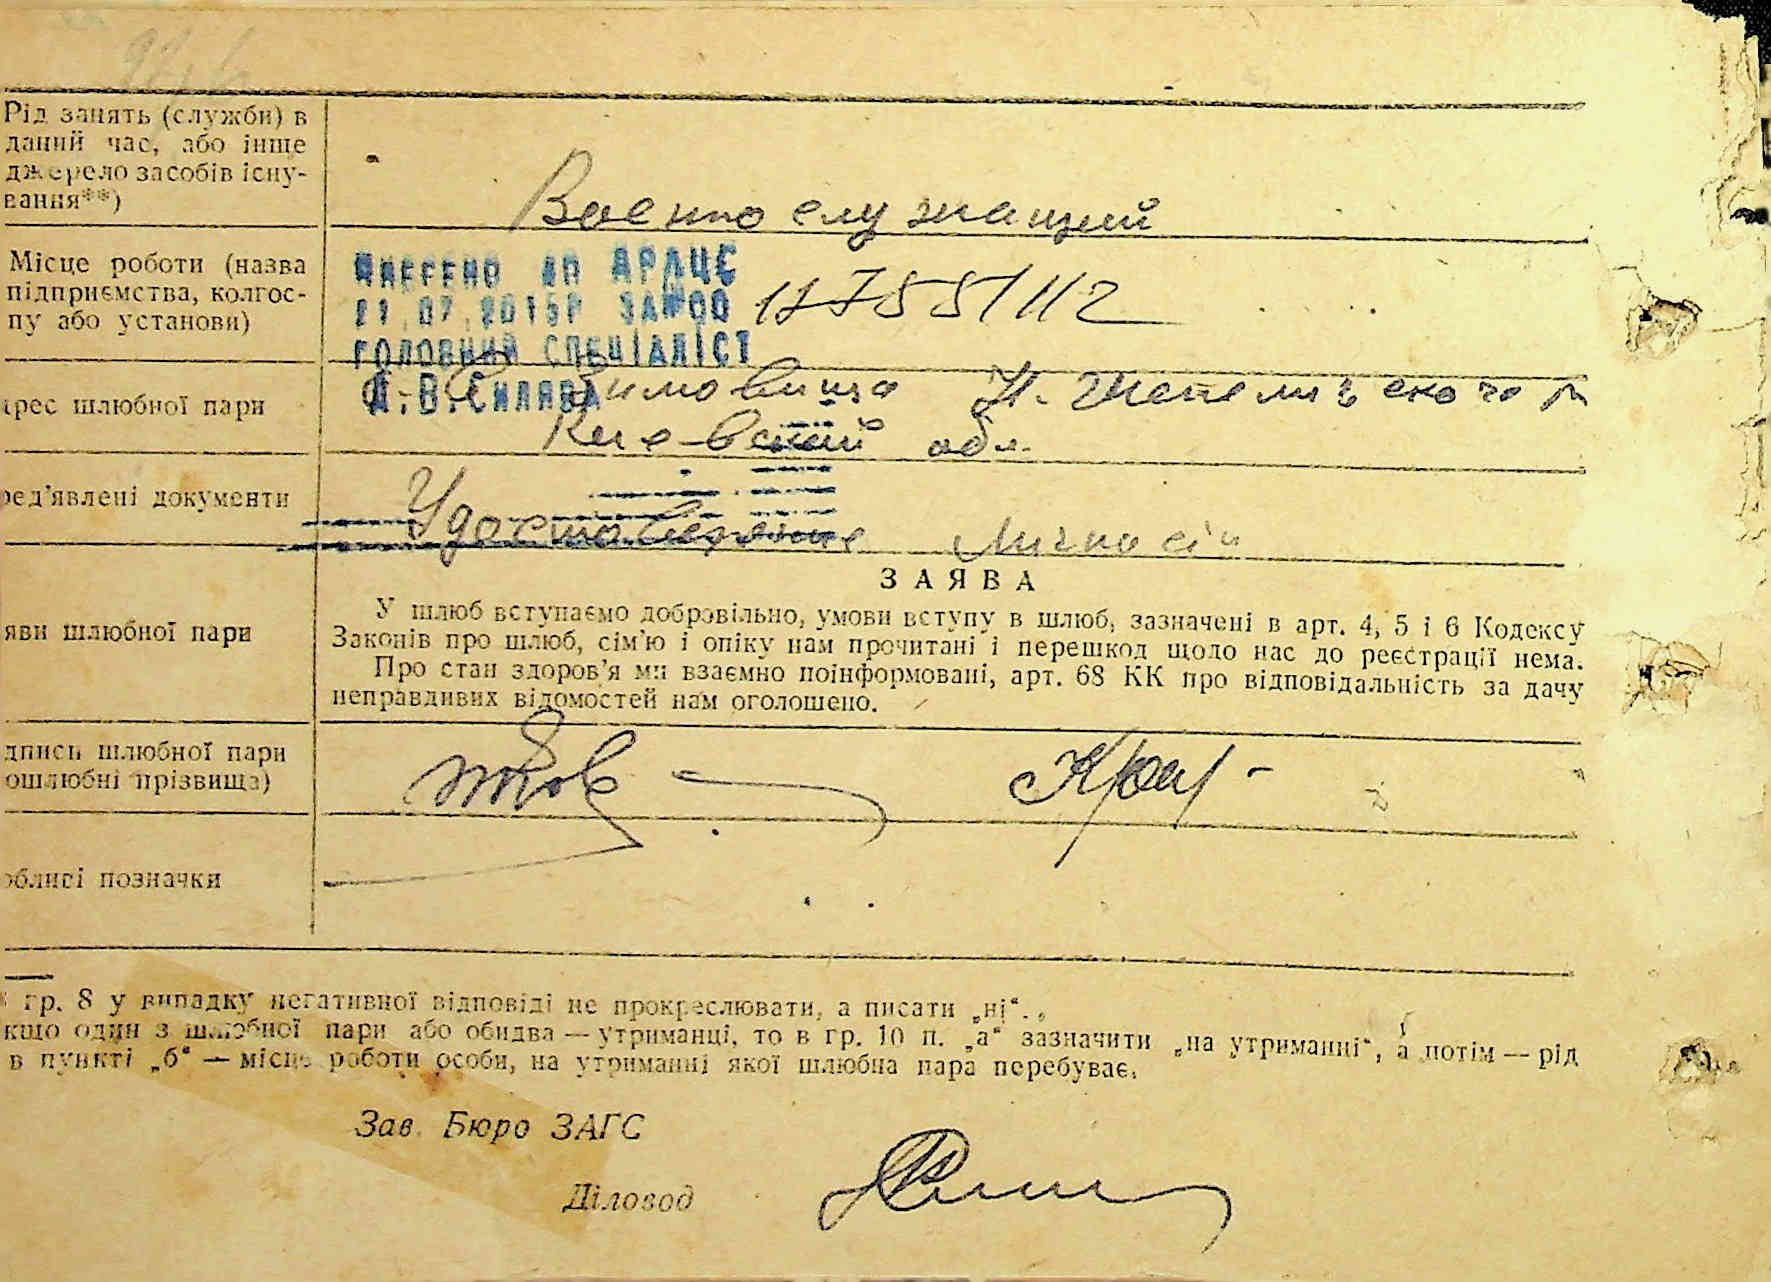 Рід занять (служби) в
даний час, або інше
джерело засобів існу-
вання**)
Военнослужащий
Місце роботи (назва
підприємства, колгос-
пу або установи)
ВНЕСЕНО ДО ДРАЦС
21.07.2015Р
ГОЛОВНИЙ СПЕЦІАЛІСТ
11755/112
рес шлюбної пари
Киевской обл.
ред’явлені документи
Удостоверение личности
ЗАЯВА
яви шлюбної пари
У шлюб вступаємо добровільно, умови вступу в шлюб, зазначені в арт. 4, 5 і 6 Кодексу
Законів про шлюб, сім’ю і опіку нам прочитані і перешкод щодо нас до реєстрації нема.
Про стан здоров’я ми взаємно поінформовані, арт. 68 КК про відповідальність за дачу
неправдивих відомостей нам оголошено.
дпись шлюбної пари
ошлюбні прізвища)
обливі позначки
гр. 8 у випадку негативної відповіді не прокреслювати, а писати „ні“.
кщо один з шлюбної пари або обидва — утриманці, то в гр. 10 п. „а“ зазначити „на утриманні“, а потім — рід
в пункті „б“ — місце роботи особи, на утриманні якої шлюбна пара перебуває.
Зав. Бюро ЗАГС
Діловод